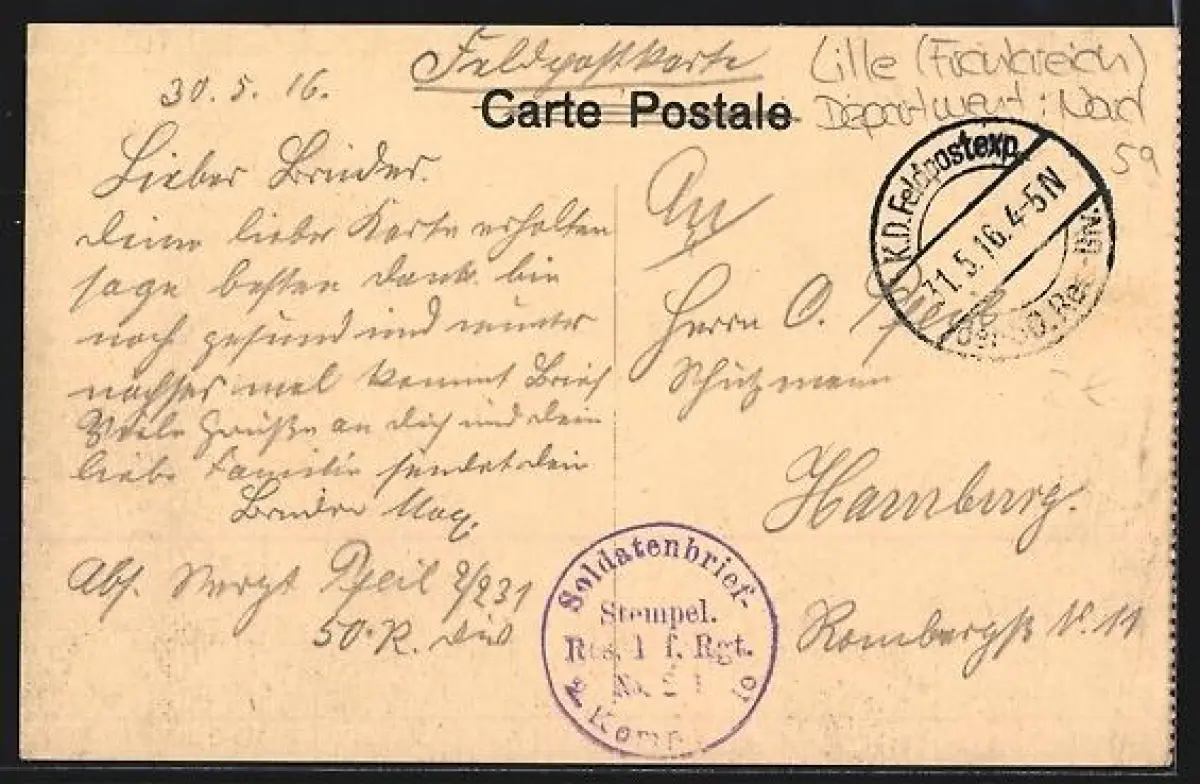 Feldpostkarte
Carte Postale
Lille (Frankreich)
Départment: Nord
59
30. 5. 16.
Lieber Bruder.
deine liebe Karte erhalten
sage besten dank. bin
noch gesund und munter
nächstes mal kommt Brief
Viele Grüße an dich und dein
liebe Familie sendet dein
Bruder Max.
Abs. Pfeil 2/231
50. R. Div
An
Herrn O. Pfeil
Schutzmann
Hamburg.
Rombergstr. 11
K.D. Feldpostexp.
31.5.16. 4-5N
der 50. Re
Soldatenbrief-
Stempel.
Res. I f. Rgt.
No. 231
2. Komp.